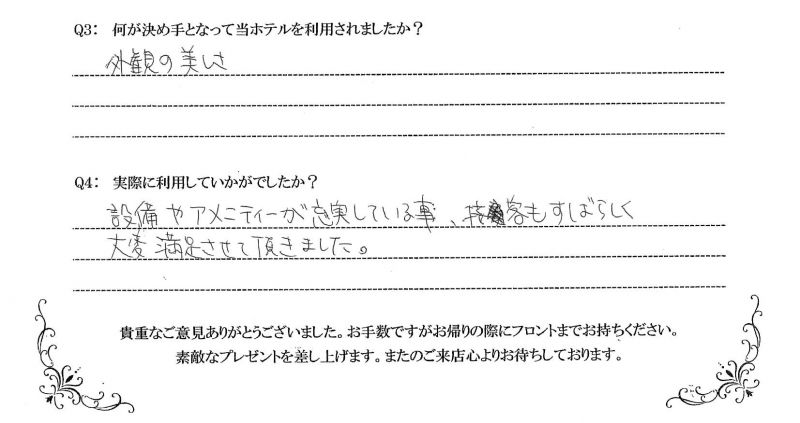 Q3： 何が決め手となって当ホテルを利用されましたか？
外観の美しさ
Q4： 実際に利用していかがでしたか？
設備やアメニティーが充実している事、接客もすばらしく
大変満足させて頂きました。
貴重なご意見ありがとうございました。お手数ですがお帰りの際にフロントまでお持ちください。
素敵なプレゼントを差し上げます。またのご来店心よりお待ちしております。